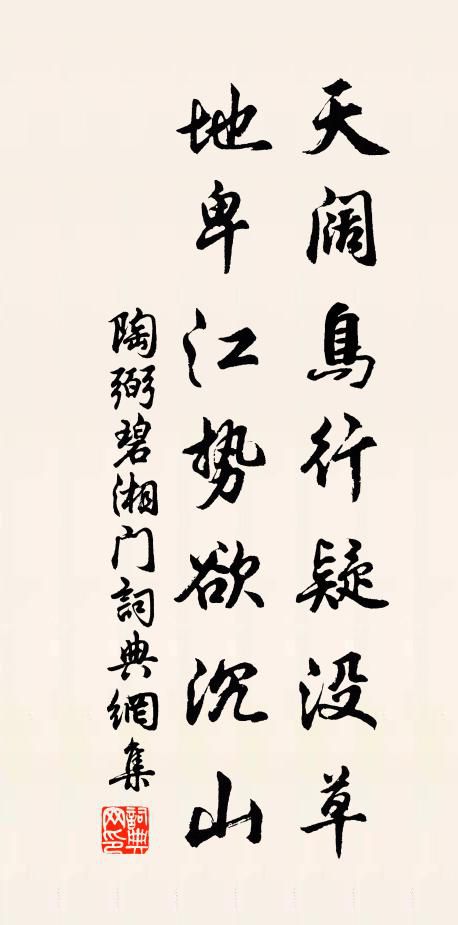 天阔鳥行疑没草
地卑江势欲沉山
陶弼碧湘门詞典網集
詞典網印